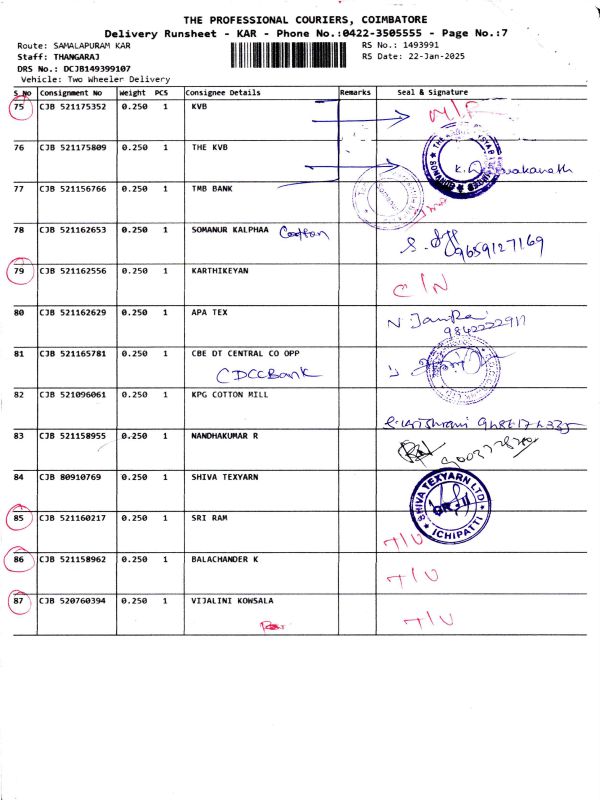 THE PROFESSIONAL COURIERS, COIMBATORE
Delivery Runsheet - KAR - Phone No.:0422-3505555 - Page No.:7
Route: SAMALAPURAM KAR
RS No.: 1493991
Staff: THANGARAJ
RS Date: 22-Jan-2025
DRS No.: DCJB149399107
Vehicle: Two Wheeler Delivery
S No Consignment No Weight PCS Consignee Details Remarks Seal & Signature
75 CJB 521175352 0.250 1 KVB
76 CJB 521175809 0.250 1 THE KVB
77 CJB 521156766 0.250 1 TMB BANK
78 CJB 521162653 0.250 1 SOMANUR KALPHAA Cotton
9659127169
79 CJB 521162556 0.250 1 KARTHIKEYAN C/N
80 CJB 521162629 0.250 1 APA TEX
9842222917
81 CJB 521165781 0.250 1 CBE DT CENTRAL CO OPP
CDCCBank
82 CJB 521096061 0.250 1 KPG COTTON MILL
83 CJB 521158955 0.250 1 NANDHAKUMAR R
84 CJB 80910769 0.250 1 SHIVA TEXYARN
SHIVA TEXYARN LTD
ICHIPATTI
85 CJB 521160217 0.250 1 SRI RAM
86 CJB 521158962 0.250 1 BALACHANDER K
87 CJB 520760394 0.250 1 VIJALINI KOWSALA